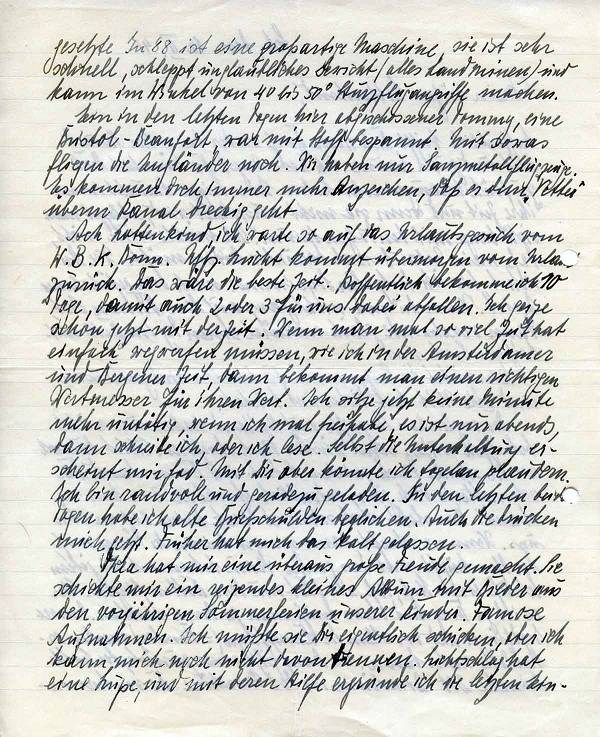 gesetzte Ju 88 ist eine großartige Maschine, sie ist sehr
schnell, schleppt unglaubliches Gewicht (alles Landminen) und
kann im Winkel von 40 bis 50° Sturzflugangriffe machen.
Ein in den letzten Tagen hier abgeschossener Tommy, eine
Bristol-Beaufort, war mit Stoff bespannt. Mit sowas
fliegen die Engländer noch. Wir haben nur Ganzmetallflugzeuge.
Es kommen doch immer mehr Anzeichen, daß es dem "Vetter"
überm Kanal dreckig geht.
Ach Kattenkind, ich warte so auf das Urlaubsgesuch vom
W.B.K. Bonn. Uffz. kommt übermorgen vom Urlaub
zurück. Das wäre die beste Zeit. Hoffentlich bekomme ich 10
Tage, damit auch 2 oder 3 für uns dabei abfallen. Ich geize
schon jetzt mit der Zeit. Wenn man mal so viel Zeit hat
einfach wegwerfen müssen, wie ich in der Amsterdamer
und Bergener Zeit, dann bekommt man einen richtigen
Wertmesser für ihren Wert. Ich sitze jetzt keine Minute
mehr untätig, wenn ich mal frei habe, es ist nur abends,
dann schreibe ich, oder ich lese. Selbst die Unterhaltung er-
scheint mir fad. Mit Dir aber könnte ich tagelang plaudern.
Ich bin randvoll und geradezu geladen. In den letzten beiden
Tagen habe ich alte Briefschulden beglichen. Auch die drücken
mich jetzt. Früher hat mich das kalt gelassen.
Thea hat mir eine überaus große Freude gemacht. Sie
schickte mir ein reizendes kleines Album mit Bilder aus
den vorjährigen Sommerferien unserer Kinder. Famose
Aufnahmen. Ich müßte sie Dir eigentlich schicken, aber ich
kann mich noch nicht davon trennen. Lichtschlag hat
eine Lupe, und mit deren Hilfe ergründe ich die letzten Ein-